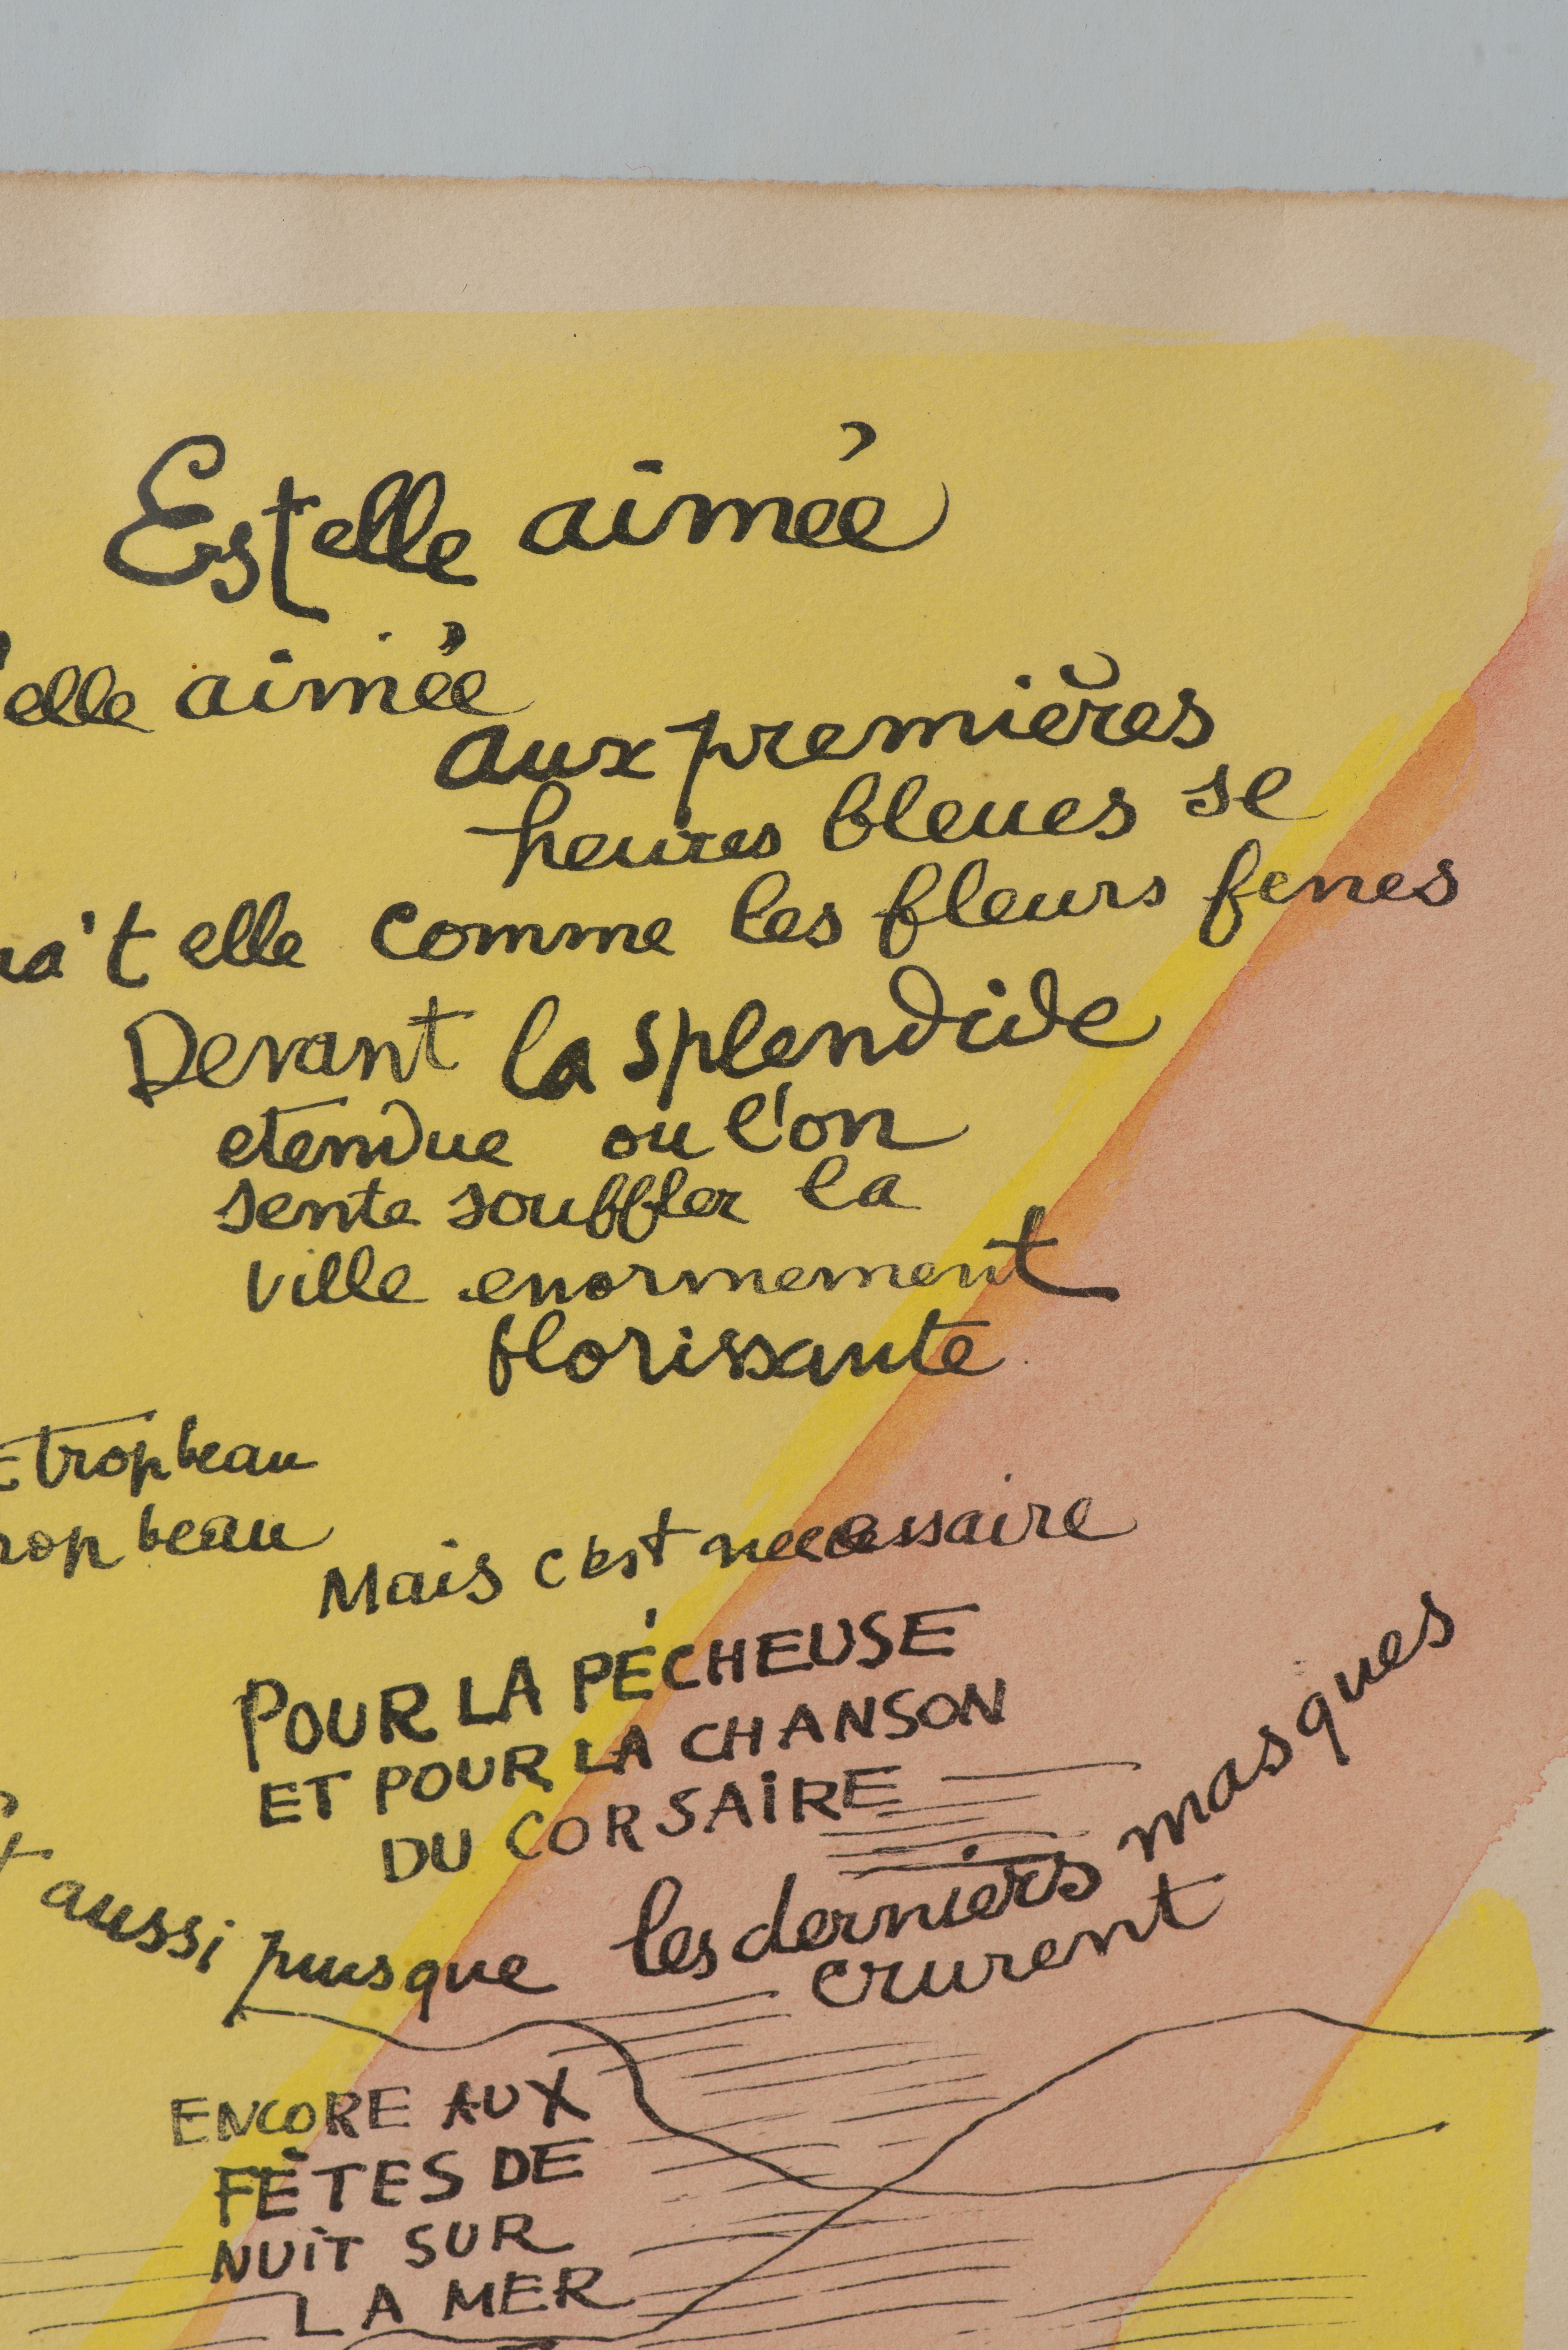 Est elle aimée
elle aimée
aux premières
heures bleues se
t elle comme les fleurs fenes
Devant la splendide
etendue ou l'on
sente souffler la
ville enormement
florissante
trop beau
beau
Mais c'est necessaire
POUR LA PÉCHEUSE
ET POUR LA CHANSON
DU CORSAIRE
aussi pusque les derniers masques
crurent
ENCORE AUX
FÊTES DE
NUIT SUR
LA MER